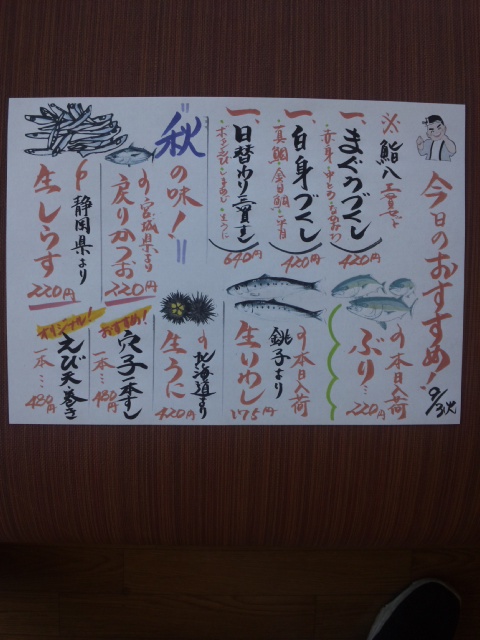 今日のおすすめ!
9/3(火)
※鮨八
一、まぐろづくし
420円
一、白身づくし
真鯛
420円
一、日替わり三貫すし
640円
"秋の味!"
宮城県より
戻りかつお
220円
静岡県より
生しらす
220円
本日入荷
ぶり…
220円
本日入荷
銚子より
生いわし
175円
北海道より
生うに
420円
おすすめ!
穴子一本すし
一本…
480円
オリジナル!
えび天巻き
一本…
480円